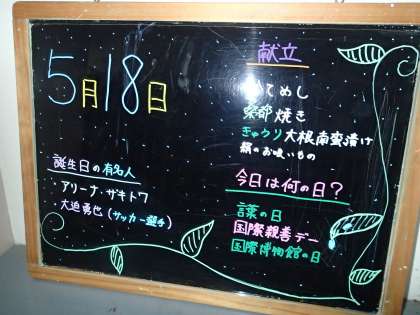 5月18日
献立
てめし
京都焼き
きゅうり大根南蛮漬け
のお吸いもの
誕生日の有名人
・アリーナ・ザギトワ
・大迫勇也(サッカー選手)
今日は何の日?
言葉の日
国際親善デー
国際博物館の日